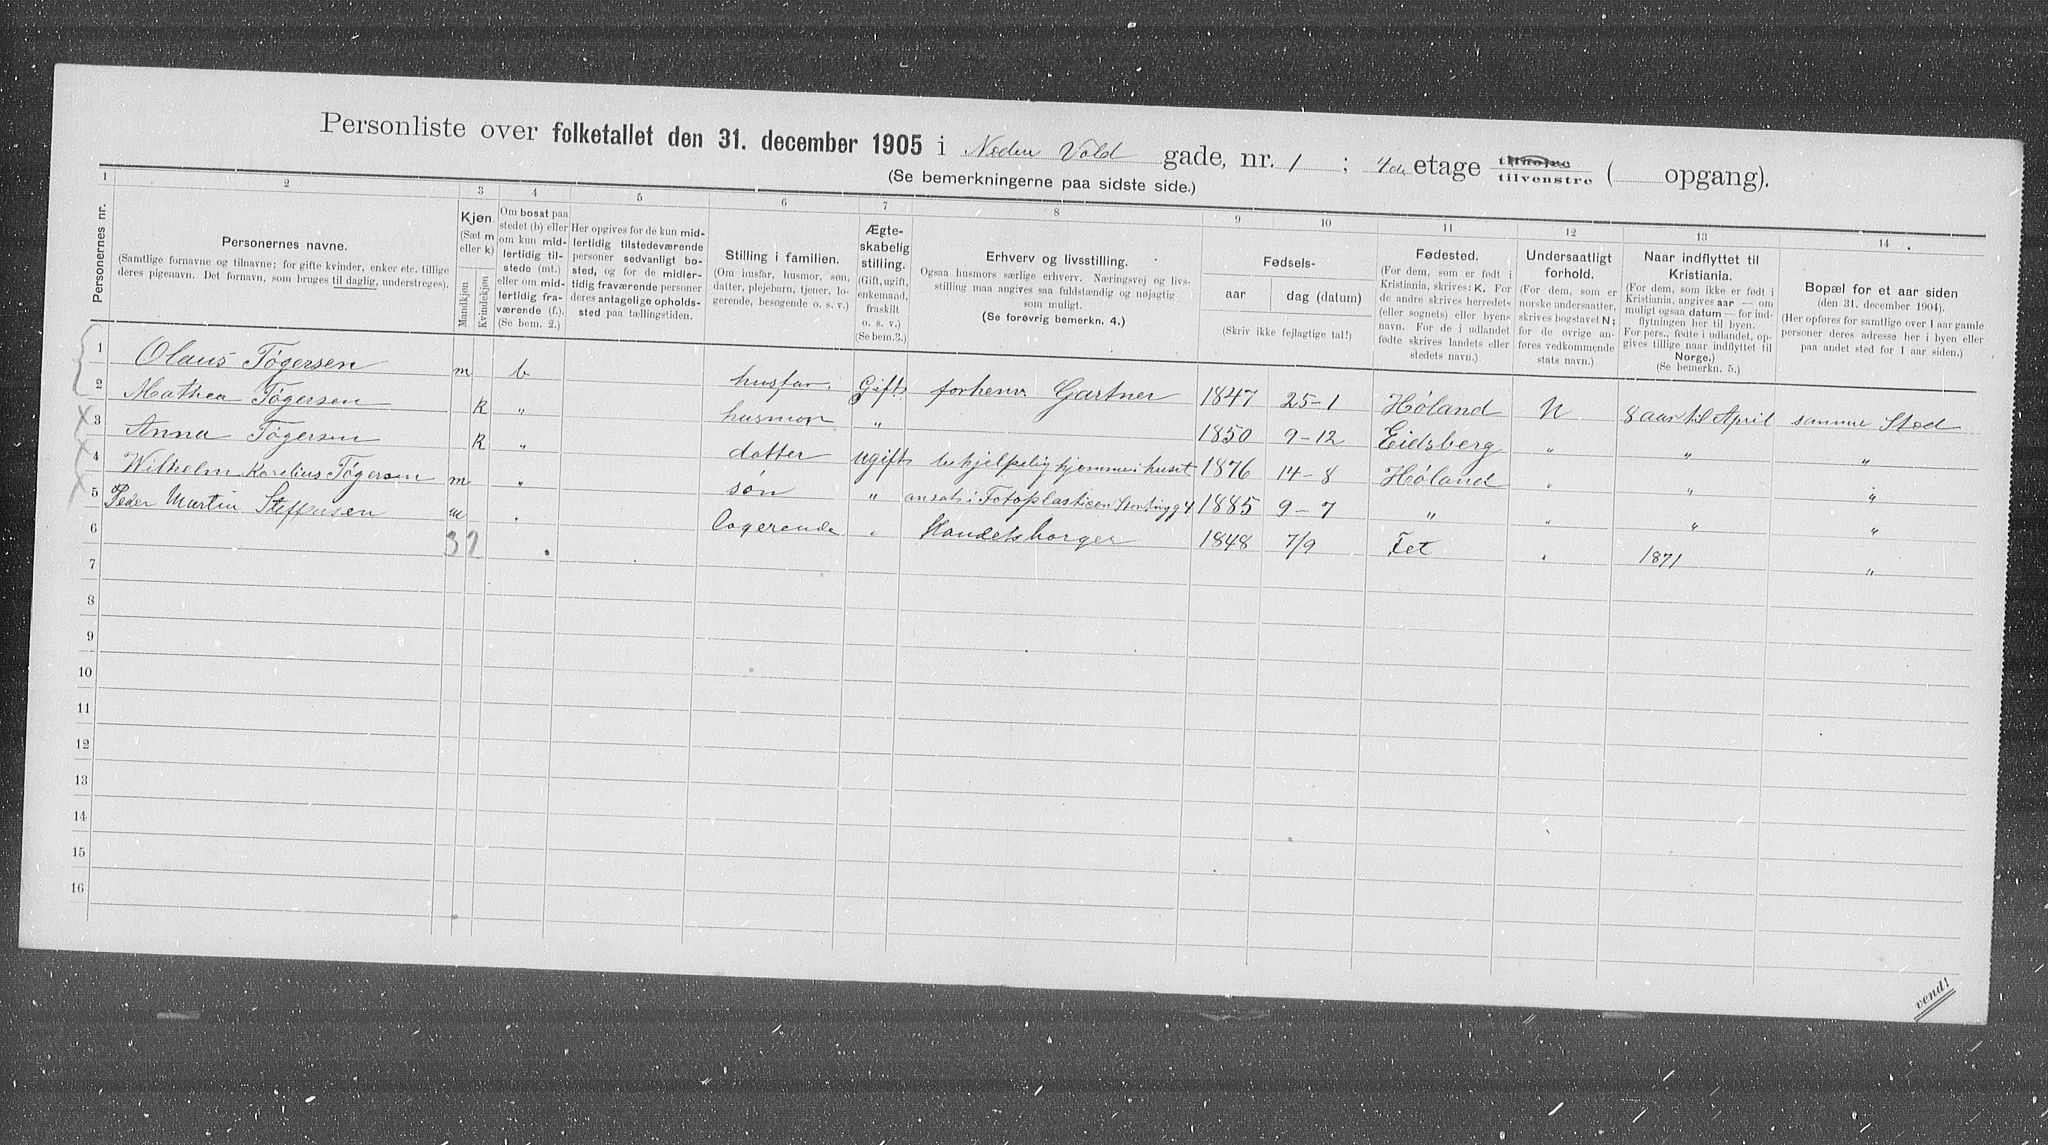 Personliste over folketallet den 31. december 1905 i Neden Vold gade, nr. 1 ; 4de etage tilhøire tilvenstre ( opgang).
(Se bemerkningerne paa sidste side.)
1 2 3 4 5 6 7 8 9 10 11 12 13 14
Personernes nr.
Personernes navne.
(Samtlige fornavne og tilnavne; for gifte kvinder, enker etc. tillige
deres pigenavn. Det fornavn, som bruges til daglig, understreges).
Kjøn.
(Sæt m
eller k)
Mandkjøn
Kvindekjøn
Om bosat paa
stedet (b) eller
om kun mid-
lertidig til-
stede (mt.)
eller om mid-
lertidig fra-
værende (f.).
(Se bem. 2.)
Her opgives for de kun mid-
lertidig tilstedeværende
personer sedvanligt bo-
sted, og for de midler-
tidig fraværende personer
deres antagelige opholds-
sted paa tællingstiden.
Stilling i familien.
(Om husfar, husmor, søn,
datter, plejebarn, tjener, lo-
gerende, besøgende o. s. v.)
Ægte-
skabelig
stilling.
(Gift, ugift,
enkemand,
fraskilt
o. s. v.)
(Se bem.3.)
Erhverv og livsstilling.
Ogsaa husmors særlige erhverv. Næringsvej og livs-
stilling maa angives saa fuldstændig og nøjagtig
som muligt.
(Se forøvrig bemerkn. 4.)
Fødsels-
aar
dag (datum)
(Skriv ikke fejlagtige tal!)
Fødested.
(For dem, som er født i
Kristiania, skrives: K. For
de andre skrives herredets
(eller sognets) eller byens
navn. For de i udlandet
fødte skrives landets eller
stedets navn.)
Undersaatligt
forhold.
(For dem, som er
norske undersaatter,
skrives bogstavet N;
for de øvrige an-
føres vedkommende
stats navn.)
Naar indflyttet til
Kristiania.
(For dem, som ikke er født i
Kristiania, angives aar — om
muligt ogsaa datum — for ind-
flytningen her til byen.
For pers., fødte i udlandet, op-
gives tillige naar indflyttet til
Norge.)
(Se bemerkn. 5.)
Bopæl for et aar siden
(den 31. december 1904).
(Her opføres for samtlige over 1 aar gamle
personer deres adresse her i byen eller
paa andet sted for 1 aar siden.)
1 Olaus Tøgersen m b husfar. Gift forhenv Gartner 1847 25-1 Høland N 8 aar til April samme Sted
2 Mathea Tøgersen K " husmor " 1850 9-12 Eidsberg " " "
3 Anna Tøgersen K " datter ugift behjelpelig hjemme i huset 1876 14-8 Høland " " "
4 Wilhelm Kornelius Tøgersen m " søn " ansat i Fotoplasticon Stortingg 4 1885 9-7 " " " "
5 Peder Martin Steffensen m " logerende " Handelsborger 1848 7/9 Fet " 1871 "
6 3 2
7
8
9
10
11
12
13
14
15
16
vend!